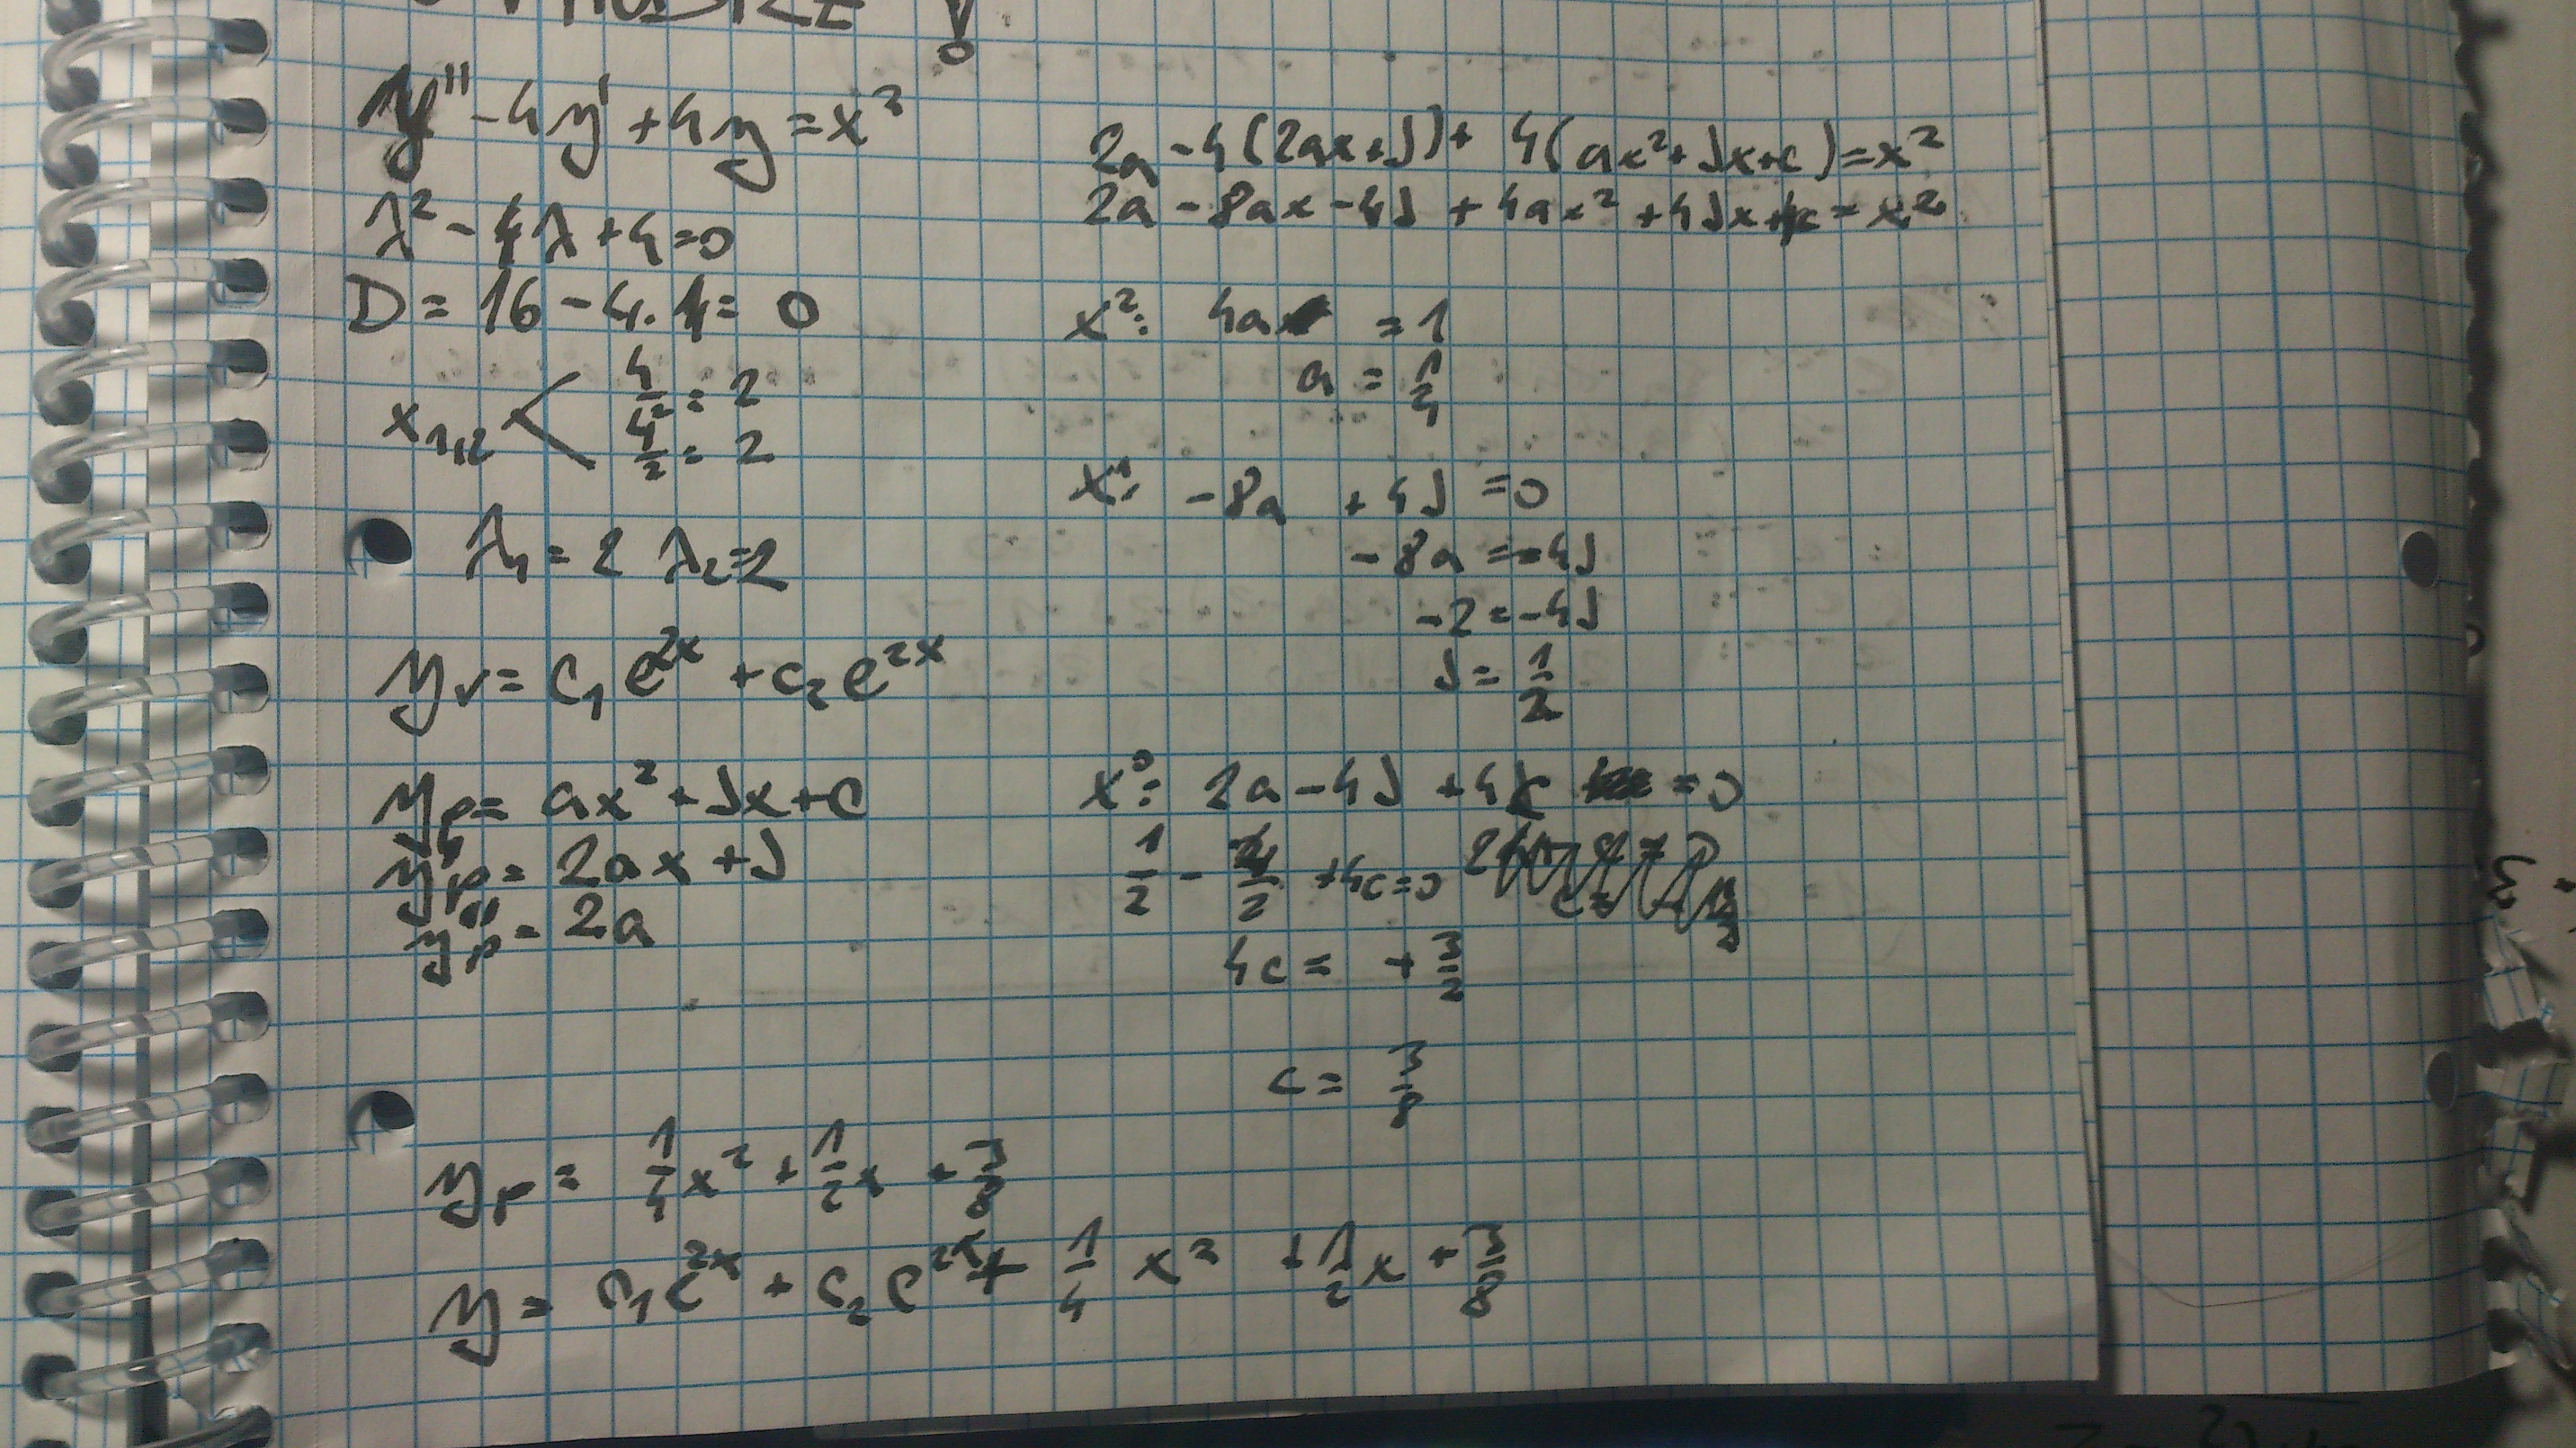 y'' - 4y' + 4y = x²
λ² - 4λ + 4 = 0
D = 16 - 4·4 = 0
x₁,₂ < 4/2 = 2
4/2 = 2
λ₁ = 2 λ₂ = 2
yᵥ = c₁e²ˣ + c₂e²ˣ
yₚ = ax² + bx + c
yₚ' = 2ax + b
yₚ'' = 2a
yₚ = 1/4 x² + 1/2 x + 3/8
y = c₁e²ˣ + c₂e²ˣ + 1/4 x² + 1/2 x + 3/8
2a - 4(2ax + b) + 4(ax² + bx + c) = x²
2a - 8ax - 4b + 4ax² + 4bx + 4c = x²
x²: 4a = 1
a = 1/4
x¹: -8a + 4b = 0
-8a = -4b
-2 = -4b
b = 1/2
x⁰: 2a - 4b + 4c = 0
1/2 - 4/2 + 4c = 0
4c = + 3/2
c = 3/8